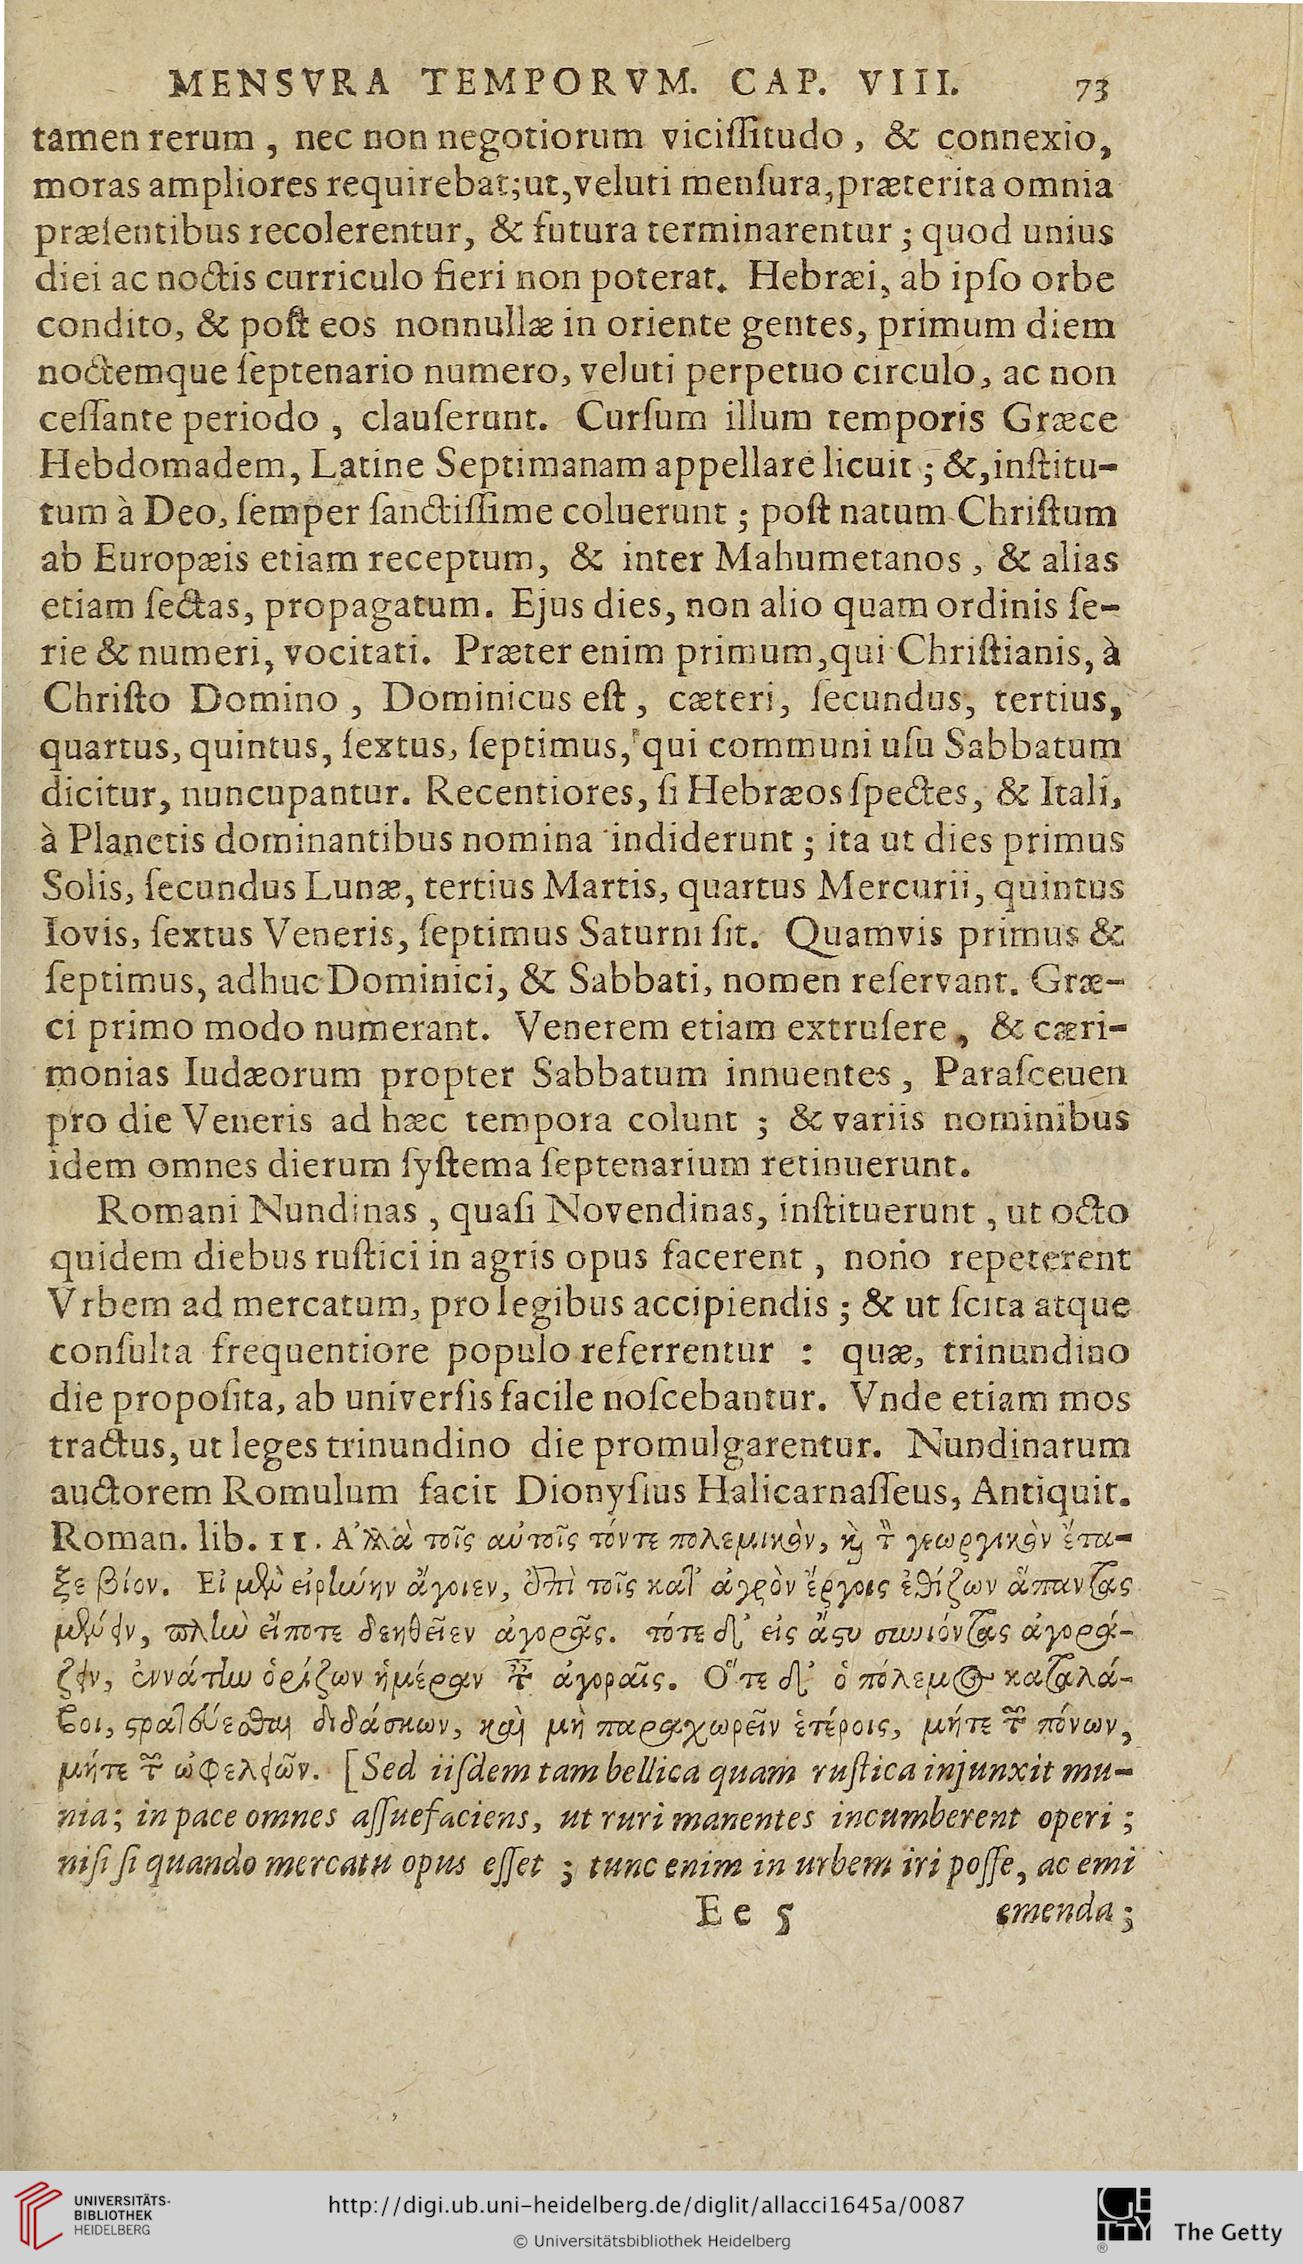 MENSVRA TEMPORVM. CAP. VIII. 73
tamen rerum, nec non negotiorum viciſſitudo, & connexio,
moras ampliores requirebat; ut, veluti menſura, præterita omnia
præſentibus recolerentur, & futura terminarentur; quod unius
diei ac noctis curriculo fieri non poterat. Hebræi, ab ipſo orbe
condito, & poſt eos nonnullæ in oriente gentes, primum diem
noctemque ſeptenario numero, veluti perpetuo circulo, ac non
ceſſante periodo, clauſerunt. Curſum illum temporis Græce
Hebdomadem, Latine Septimanam appellare licuit; &, inſtitu-
tum à Deo, ſemper ſanctiſſime coluerunt; poſt natum Chriſtum
ab Europæis etiam receptum, & inter Mahumetanos, & alias
etiam ſectas, propagatum. Ejus dies, non alio quam ordinis ſe-
rie & numeri, vocitati. Præter enim primum, qui Chriſtianis, à
Chriſto Domino, Dominicus eſt, cæteri, ſecundus, tertius,
quartus, quintus, ſextus, ſeptimus, qui communi uſu Sabbatum
dicitur, nuncupantur. Recentiores, ſi Hebræos ſpectes, & Itali,
à Planetis dominantibus nomina indiderunt; ita ut dies primus
Solis, ſecundus Lunæ, tertius Martis, quartus Mercurii, quintus
Iovis, ſextus Veneris, ſeptimus Saturni ſit. Quamvis primus &
ſeptimus, adhuc Dominici, & Sabbati, nomen reſervant. Græ-
ci primo modo numerant. Venerem etiam extruſere, & cæri-
monias Iudæorum propter Sabbatum innuentes, Paraſceuen
pro die Veneris ad hæc tempora colunt; & variis nominibus
idem omnes dierum ſyſtema ſeptenarium retinuerunt.
Romani Nundinas, quaſi Novendinas, inſtituerunt, ut octo
quidem diebus ruſtici in agris opus facerent, nono repeterent
Vrbem ad mercatum, pro legibus accipiendis; & ut ſcita atque
conſulta frequentiore populo referrentur: quæ, trinundino
die propoſita, ab univerſis facile noſcebantur. Vnde etiam mos
tractus, ut leges trinundino die promulgarentur. Nundinarum
auctorem Romulum facit Dionyſius Halicarnaſſeus, Antiquit.
Roman. lib. II. Ἀλλὰ τοῖς αὐτοῖς τόντε πολεμικὸν, καὶ τὸν γεωργικὸν ἔτα-
ξε βίον. Εἰ μὲν εἰρήνην ἄγοιεν, ἐπὶ τοῖς κατ' ἀγρὸν ἔργοις ἐθίζων ἅπαντας
μένειν, πλὴν εἴποτε δεηθεῖεν ἀγορᾶς. τότε δ' εἰς ἄστυ συνιόντας ἀγορά-
ζειν, ἐννάτην ὁρίζων ἡμέραν ταῖς ἀγοραῖς. Ὅτε δ' ὁ πόλεμος καταλά-
βοι, στρατεύεσθαι διδάσκων, καὶ μὴ παραχωρεῖν ἑτέροις, μήτε τῶν πόνων,
μήτε τῶν ὠφελειῶν. [Sed iiſdem tam bellica quam ruſtica injunxit mu-
nia; in pace omnes aſſuefaciens, ut ruri manentes incumberent operi;
niſi ſi quando mercatu opus eſſet; tunc enim in urbem iri poſſe, ac emi
Ee 5 emenda;
UNIVERSITÄTS-
BIBLIOTHEK
HEIDELBERG
http://digi.ub.uni-heidelberg.de/diglit/allacci1645a/0087
© Universitätsbibliothek Heidelberg
GETTY
The Getty